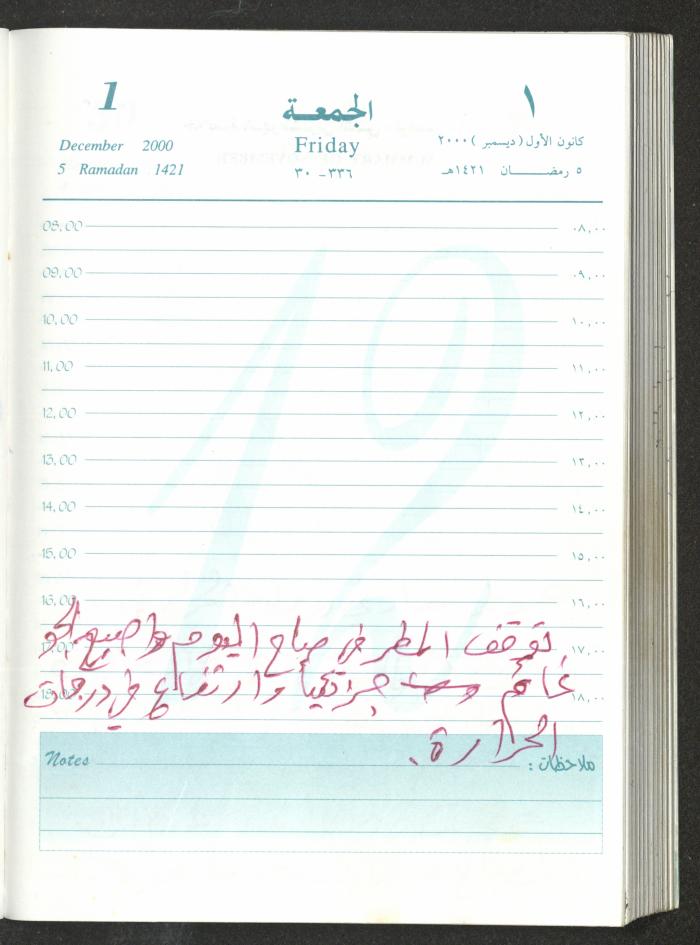 1 الجمعة ١
December 2000 Friday كانون الأول (ديسمبر) ٢٠٠٠
5 Ramadan 1421 ٣٣٦ - ٣٠ ٥ رمضان ١٤٢١هـ
08,00 ٠٨,٠٠
09,00 ٠٩,٠٠
10,00 ١٠,٠٠
11,00 ١١,٠٠
12,00 ١٢,٠٠
13,00 ١٣,٠٠
14,00 ١٤,٠٠
15,00 ١٥,٠٠
16,00 ١٦,٠٠
17,00 ١٧,٠٠
توقف المطر في صباح اليوم واصبح الجو
18,00 ١٨,٠٠
غائم جزئياً وارتفاع في درجات
الحرارة.
Notes ملاحظات :
12